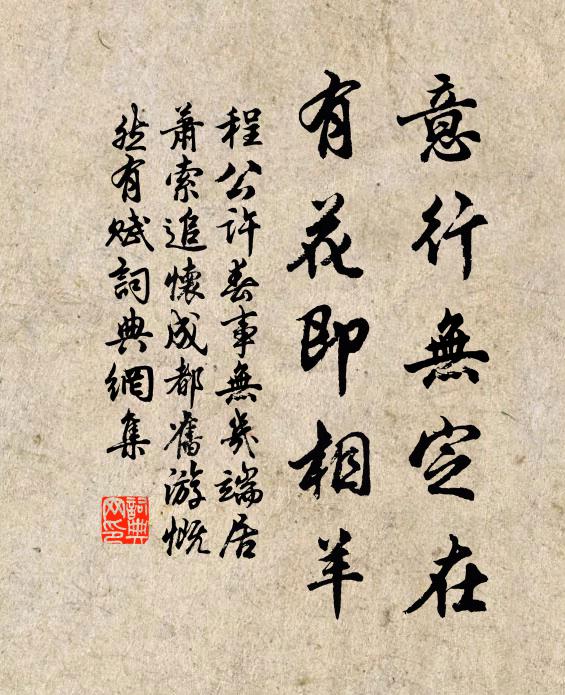 意行無定在
有花即相羊
程公許春事無幾端居
蕭索追懷成都舊游慨
然有賦詞典網集
詞典網印